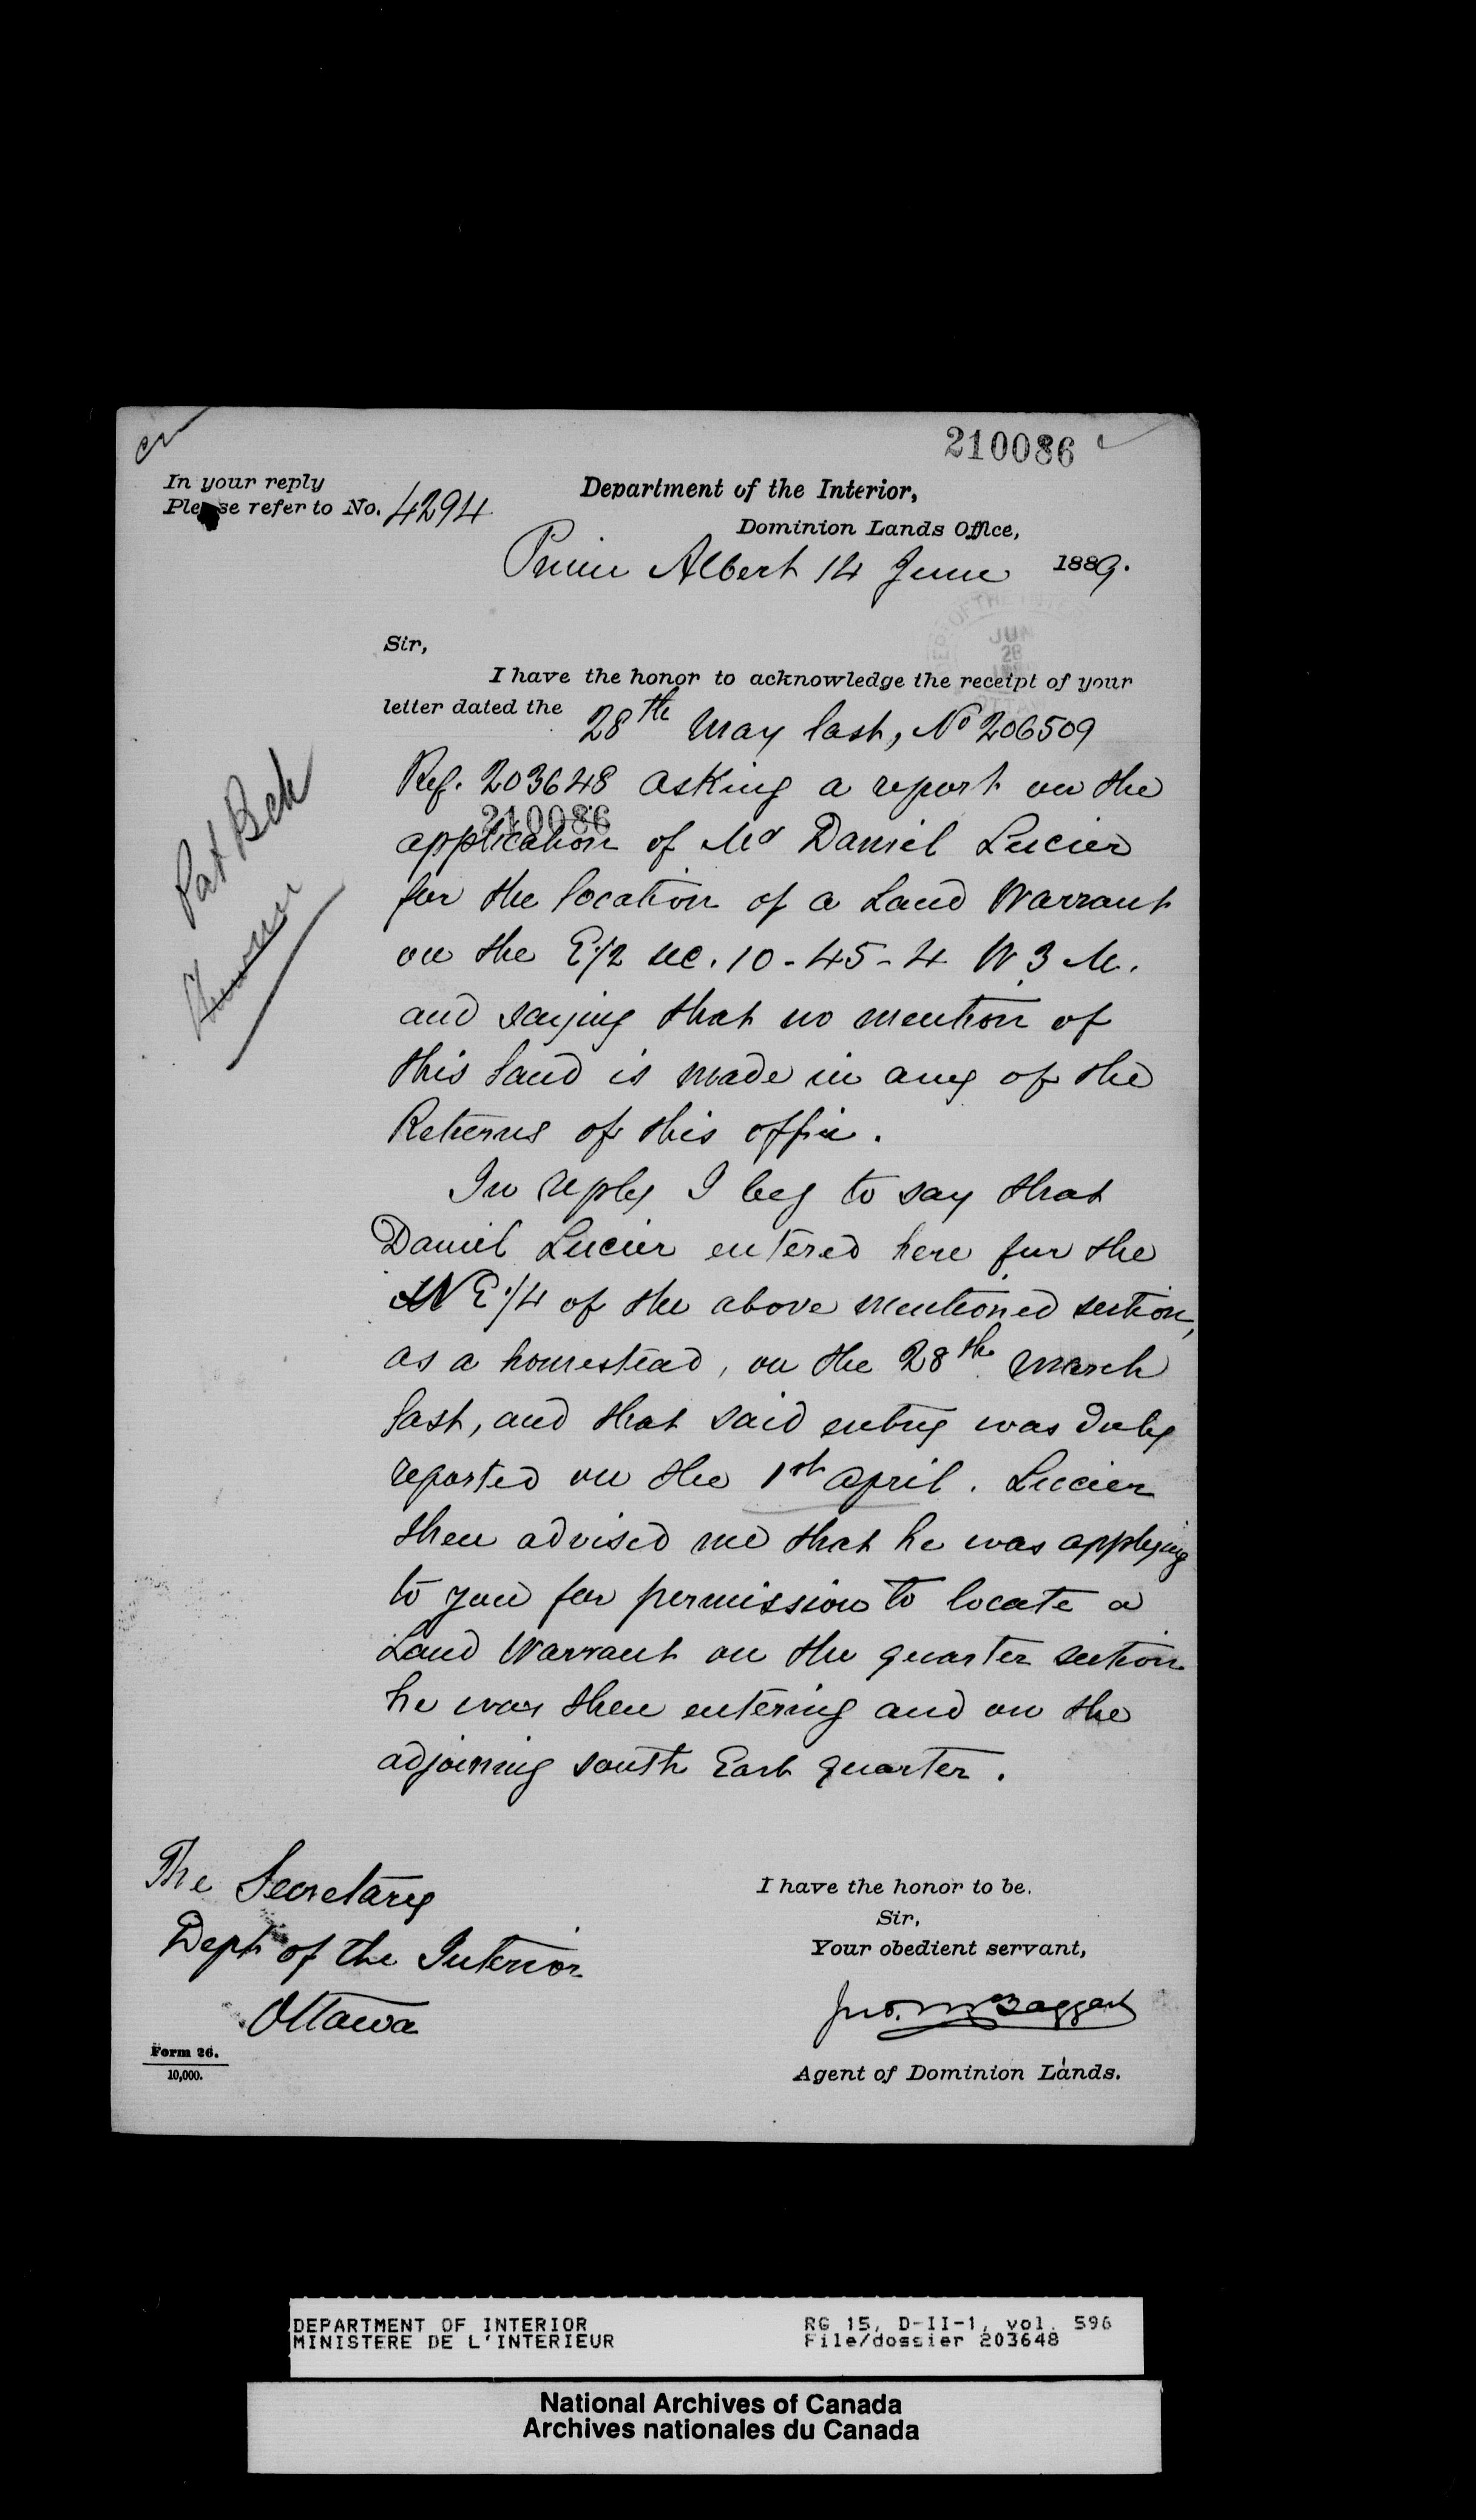 210086
In your reply
Please refer to No. 4294
Department of the Interior,
Dominion Lands Office,
Prince Albert 14 June 1889.
DEPT OF THE INTERIOR
JUN
28
OTTAWA
Sir,
I have the honor to acknowledge the receipt of your
letter dated the 28th May last, No 206509
Ref. 203648 asking a report on the
210086
application of Mr Daniel Lucier
for the location of a Land Warrant
on the E1/2 sec. 10-45-4 W 3 M.
and saying that no mention of
this land is made in any of the
Returns of this office.
In reply I beg to say that
Daniel Lucier entered here for the
NE 1/4 of the above mentioned section,
as a homestead, on the 28th March
last, and that said entry was duly
reported on the 1st April. Lucier
then advised me that he was applying
to you for permission to locate a
Land Warrant on the quarter section
he was then entering and on the
adjoining South East quarter.
Pat Bch
The Secretary
Dept of the Interior
Ottawa
I have the honor to be.
Sir,
Your obedient servant,
Jno. McTaggart
Agent of Dominion Lands.
Form 26.
10,000.
DEPARTMENT OF INTERIOR
MINISTERE DE L'INTERIEUR
RG 15, D-II-1, vol. 596
File/dossier 203648
National Archives of Canada
Archives nationales du Canada